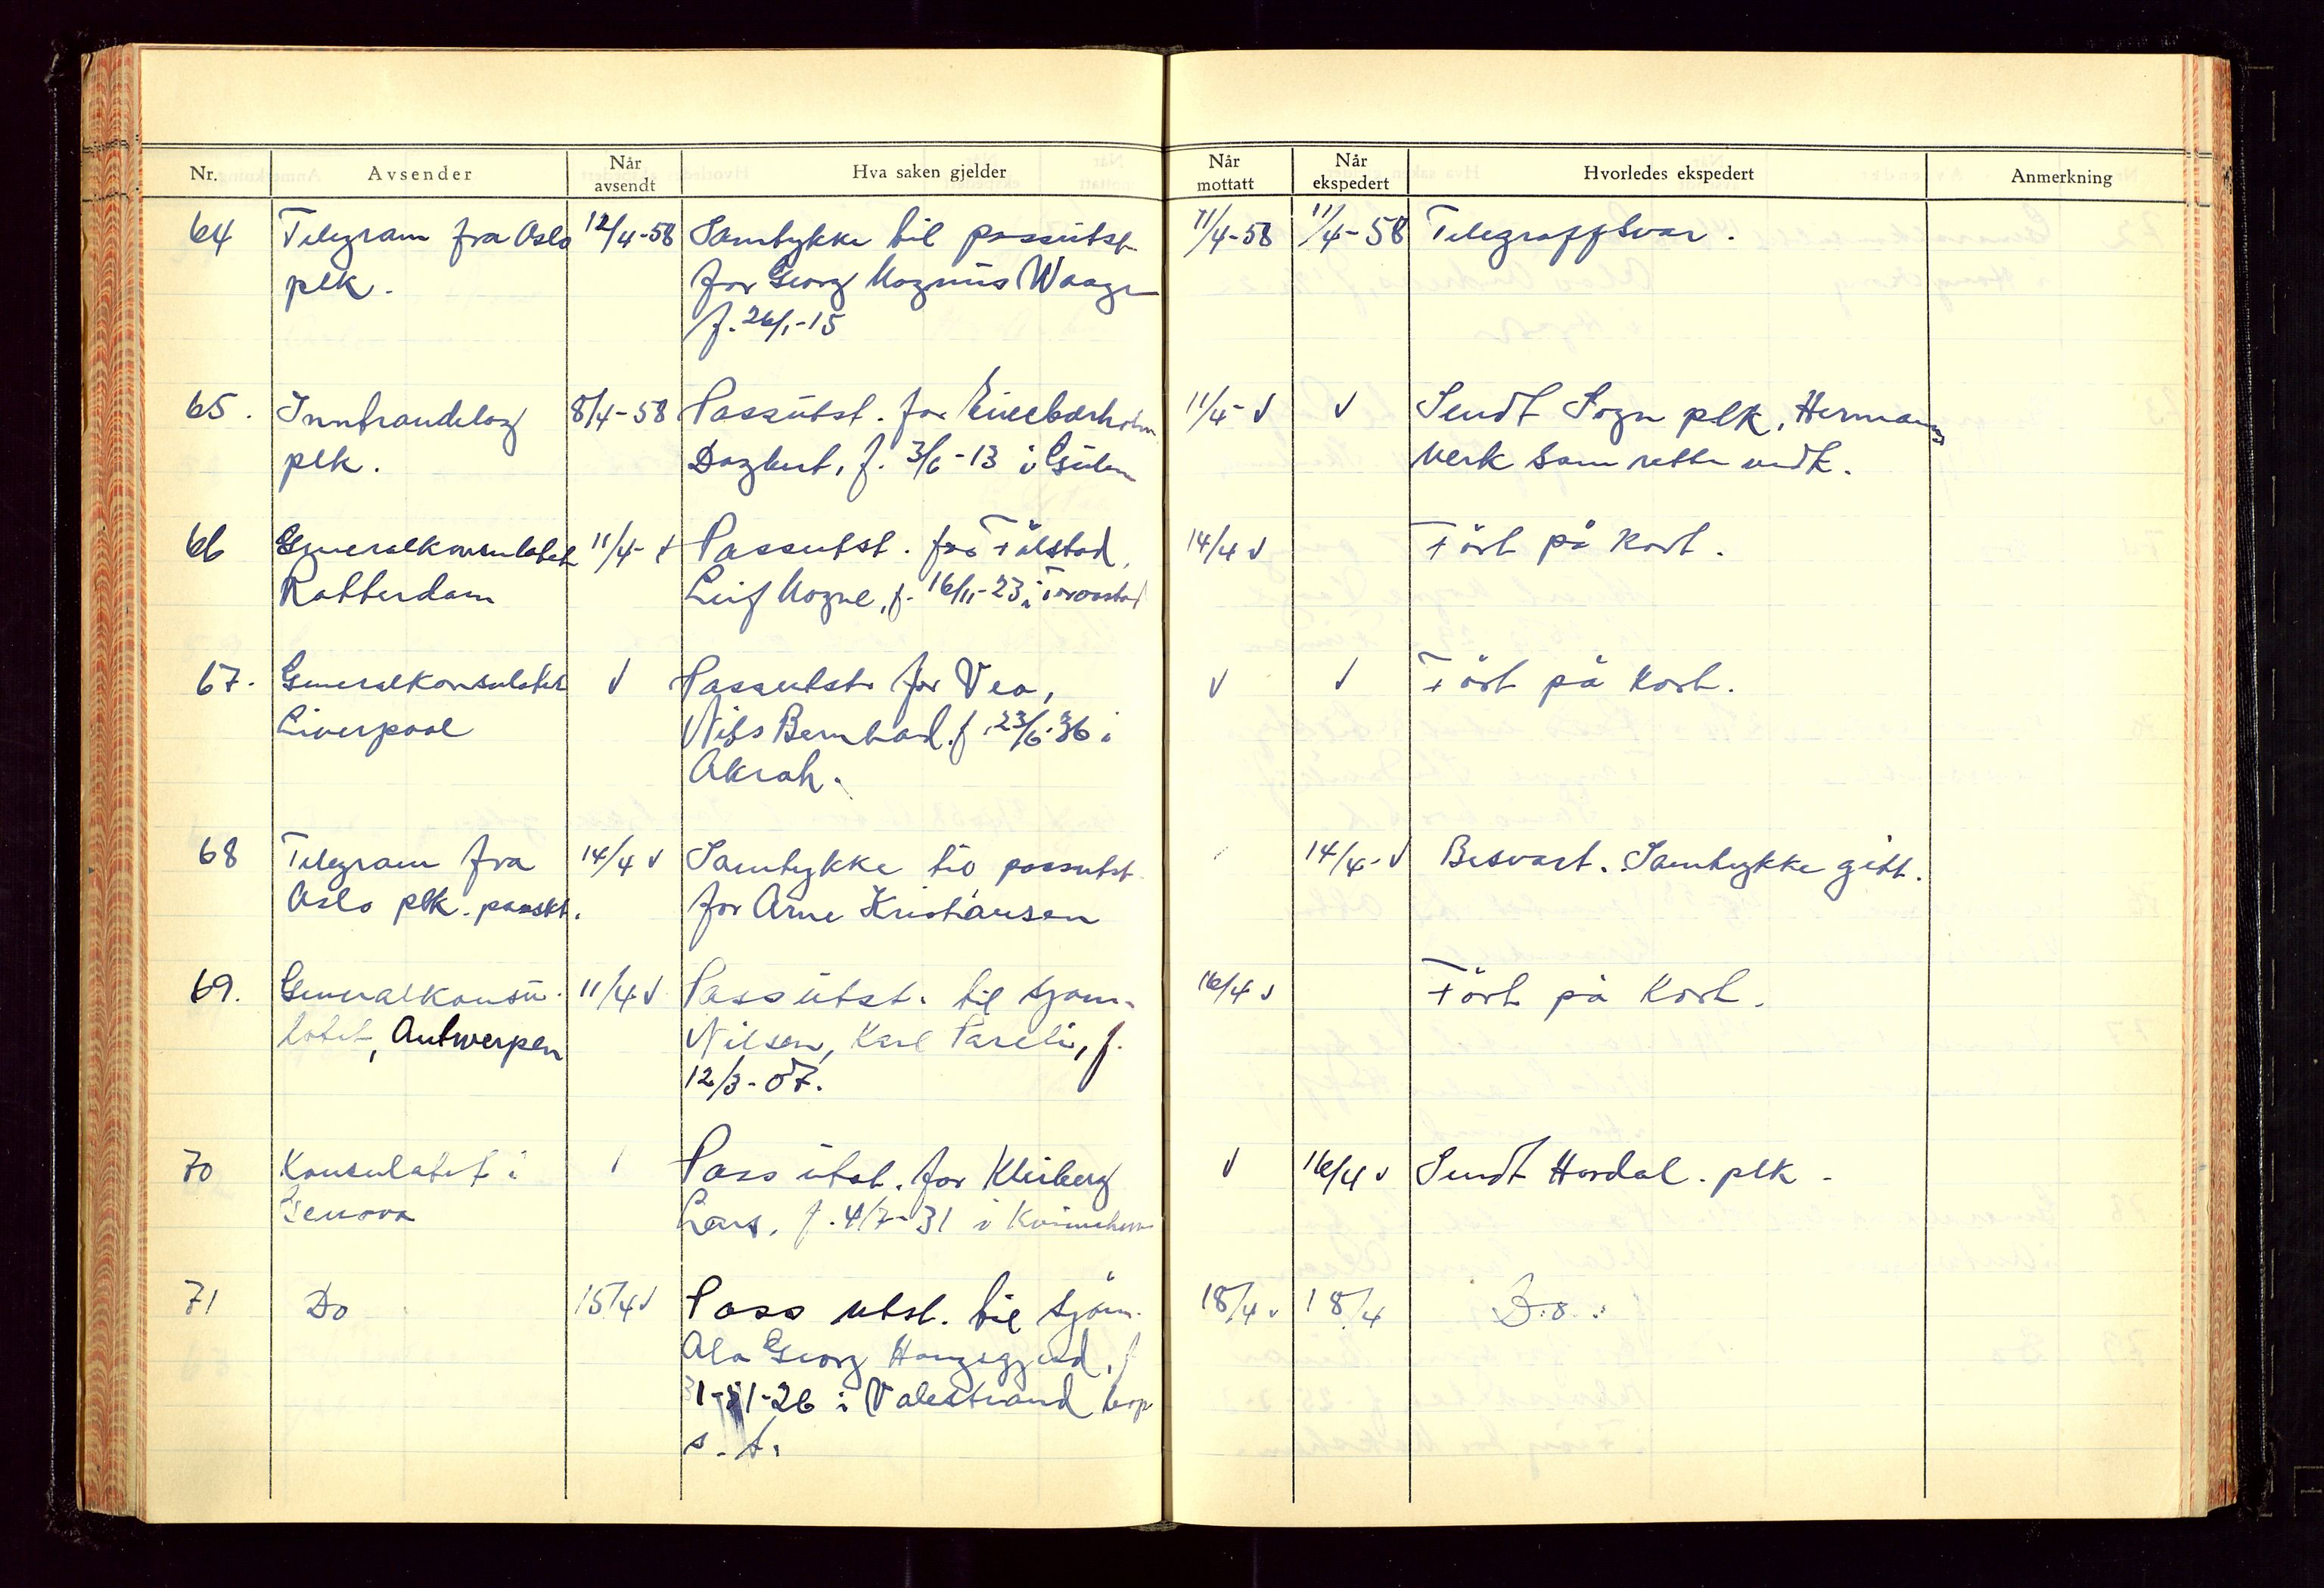 Nr. Avsender Når avsendt Hva saken gjelder Når mottatt Når ekspedert Hvorledes ekspedert Anmerkning
64 Telegram fra Oslo 12/4-58 Samtykke til passutst. 11/4-58 11/4-58 Telegraffsvar.
plk. for Georg Magnus Waage
f. 26/1-15
65. 8/4-58 Passutst. for 11/4- √ √ Sendt Sogn plk, Hermans
plk. Dagbert, f. 3/6-13 i Gulen verk som rette vedk.
66 Generalkonsulatet 11/4- √ Passutst. for Tålstad, 14/4 √ Ført på kort.
Rotterdam Leif Mogne, f. 16/11-23 i Torvastad
67. Generalkonsulatet √ Passutst. for Vea, √ √ Ført på kort.
Liverpool Nils Bernhard f. 23/6-36 i
Åkrah.
68 Telegram fra 14/4 √ Samtykke til passutst. 14/4- √ Besvart. Samtykke gitt.
Oslo plk. passkt. for Arne Kristiansen
69. Generalkonsu- 11/4 √ Pass utst. til sjøm. 16/4 √ Ført på kort.
latet, Antwerpen Nilsen, Karl Pareli, f.
12/3-07.
70 Konsulatet i Pass utst. for Kleiberg √ 16/4 √ Sendt Hordal. plk.
Genova Lars, f. 4/7-31 i Kvinnherr
71 Do 15/4 √ Pass utst. til sjøm. 18/4 √ 18/4 D.o.
Ola Georg Haugsgjerd, f
i Valestrand
s. st.